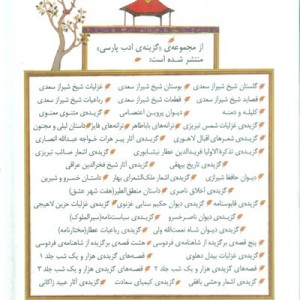 از مجموعه‌ی «گزینه‌ی ادب پارسی»
منتشر شده است:
گلستان شیخ شیراز سعدی ■ بوستان شیخ شیراز سعدی ■ غزلیات شیخ شیراز سعدی
قصاید شیخ شیراز سعدی ■ قطعات شیخ شیراز سعدی ■ رباعیات شیخ شیراز سعدی
کلیله و دمنه ■ دیوان پروین اعتصامی ■ گزیده‌ی مثنوی معنوی
گزیده‌ی غزلیات شمس تبریزی ■ ترانه‌های باباطاهر ■ ترانه‌های فایز ■ داستان لیلی و مجنون
گزیده‌ی شعرهای اقبال لاهوری ■ گزیده‌ی آثار پیر هرات خواجه عبدالله انصاری
گزیده‌ی تذکرةالاولیا فریدالدین عطار نیشابوری ■ گزیده‌ی اشعار صائب تبریزی
گزیده‌ی تاریخ بیهقی ■ گزیده‌ی آثار شیخ فخرالدین عراقی
دیوان حافظ شیرازی ■ گزیده‌ی اشعار ملک‌الشعرای بهار ■ داستان خسرو و شیرین
گزیده‌ی اخلاق ناصری ■ داستان منطق‌الطیر (هفت شهر عشق)
گزیده‌ی قابوسنامه ■ گزیده‌ی دیوان حکیم سنایی غزنوی ■ گزیده‌ی غزلیات حزین لاهیجی
گزیده‌ی دیوان ناصرخسرو ■ گزیده‌ی سیاست‌نامه (سیرالملوک)
گزیده‌ی دیوان شاه نعمت‌الله ولی ■ گزیده‌ی رباعیات عطار (مختارنامه)
پنج قصه‌ی برگزیده از شاهنامه‌ی فردوسی ■ هشت قصه‌ی برگزیده از شاهنامه‌ی فردوسی
گزیده‌ی غزلیات بیدل دهلوی ■ قصه‌های گزیده‌ی هزار و یک شب جلد ۱
قصه‌های گزیده‌ی هزار و یک شب جلد ۲ ■ قصه‌های گزیده‌ی هزار و یک شب جلد ۳
گزیده‌ی اشعار وحشی بافقی ■ گزیده‌ی کیمیای سعادت ■ گزیده‌ی آثار عبید زاکانی